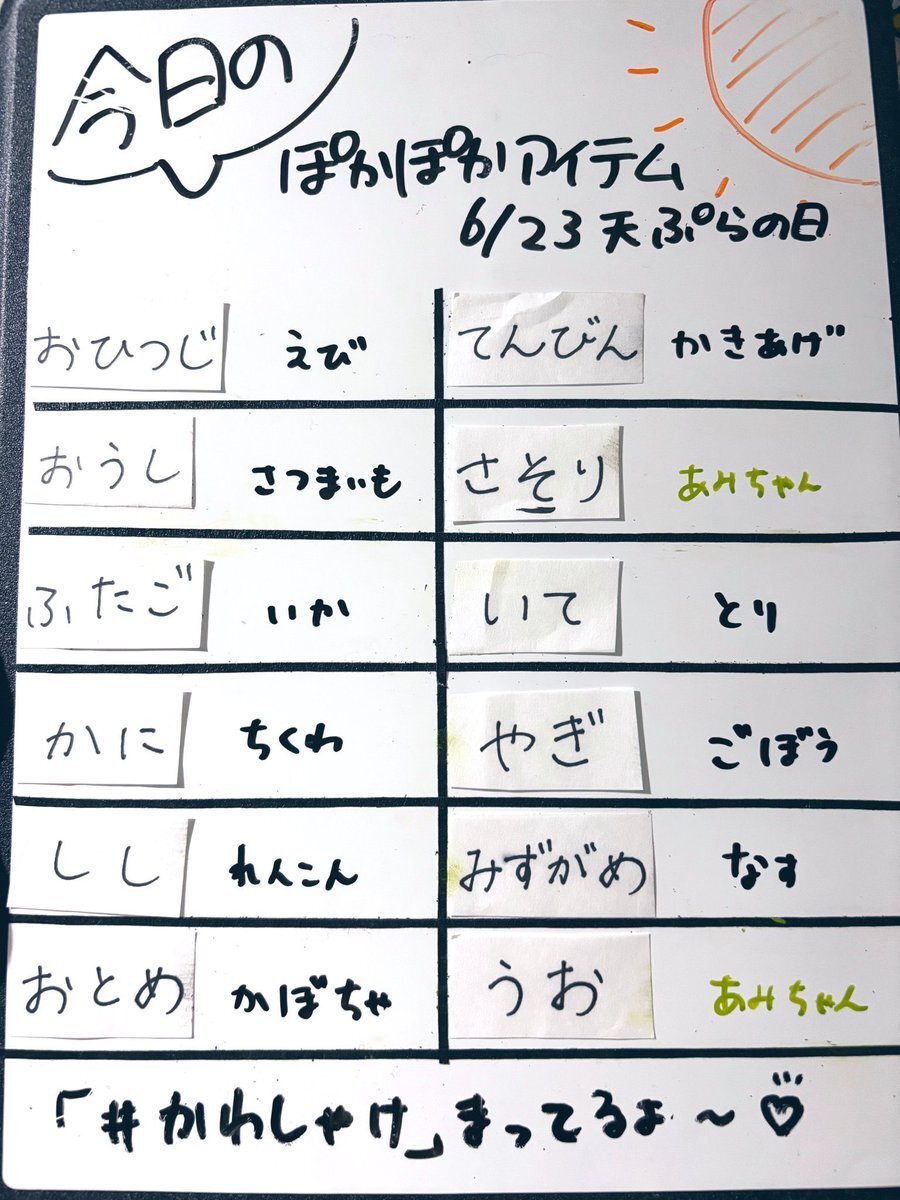 今日の
ぽかぽかアイテム
6/23 天ぷらの日
おひつじ えび
おうし さつまいも
ふたご いか
かに ちくわ
しし れんこん
おとめ かぼちゃ
てんびん かきあげ
さそり あみちゃん
いて とり
やぎ ごぼう
みずがめ なす
うお あみちゃん
「#かわしゃけ」まってるよ～♡